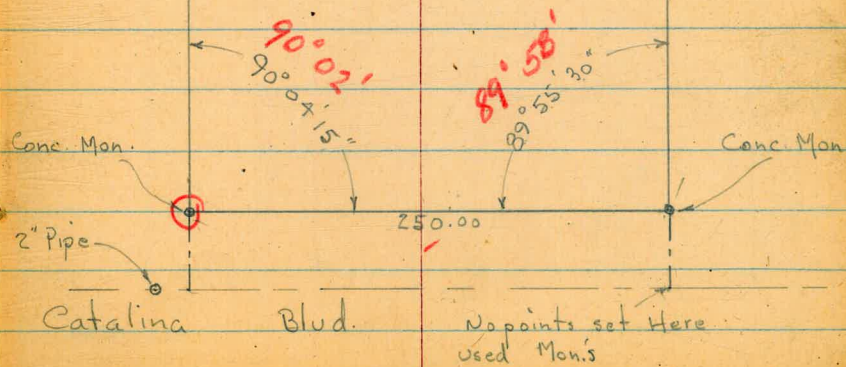 90° 02'
90° 04' 15"
89' 58'
89° 55' 30"
Conc. Mon.
Conc. Mon
250.00
2" Pipe
Catalina Blvd.
No points set Here
used Mon.'s